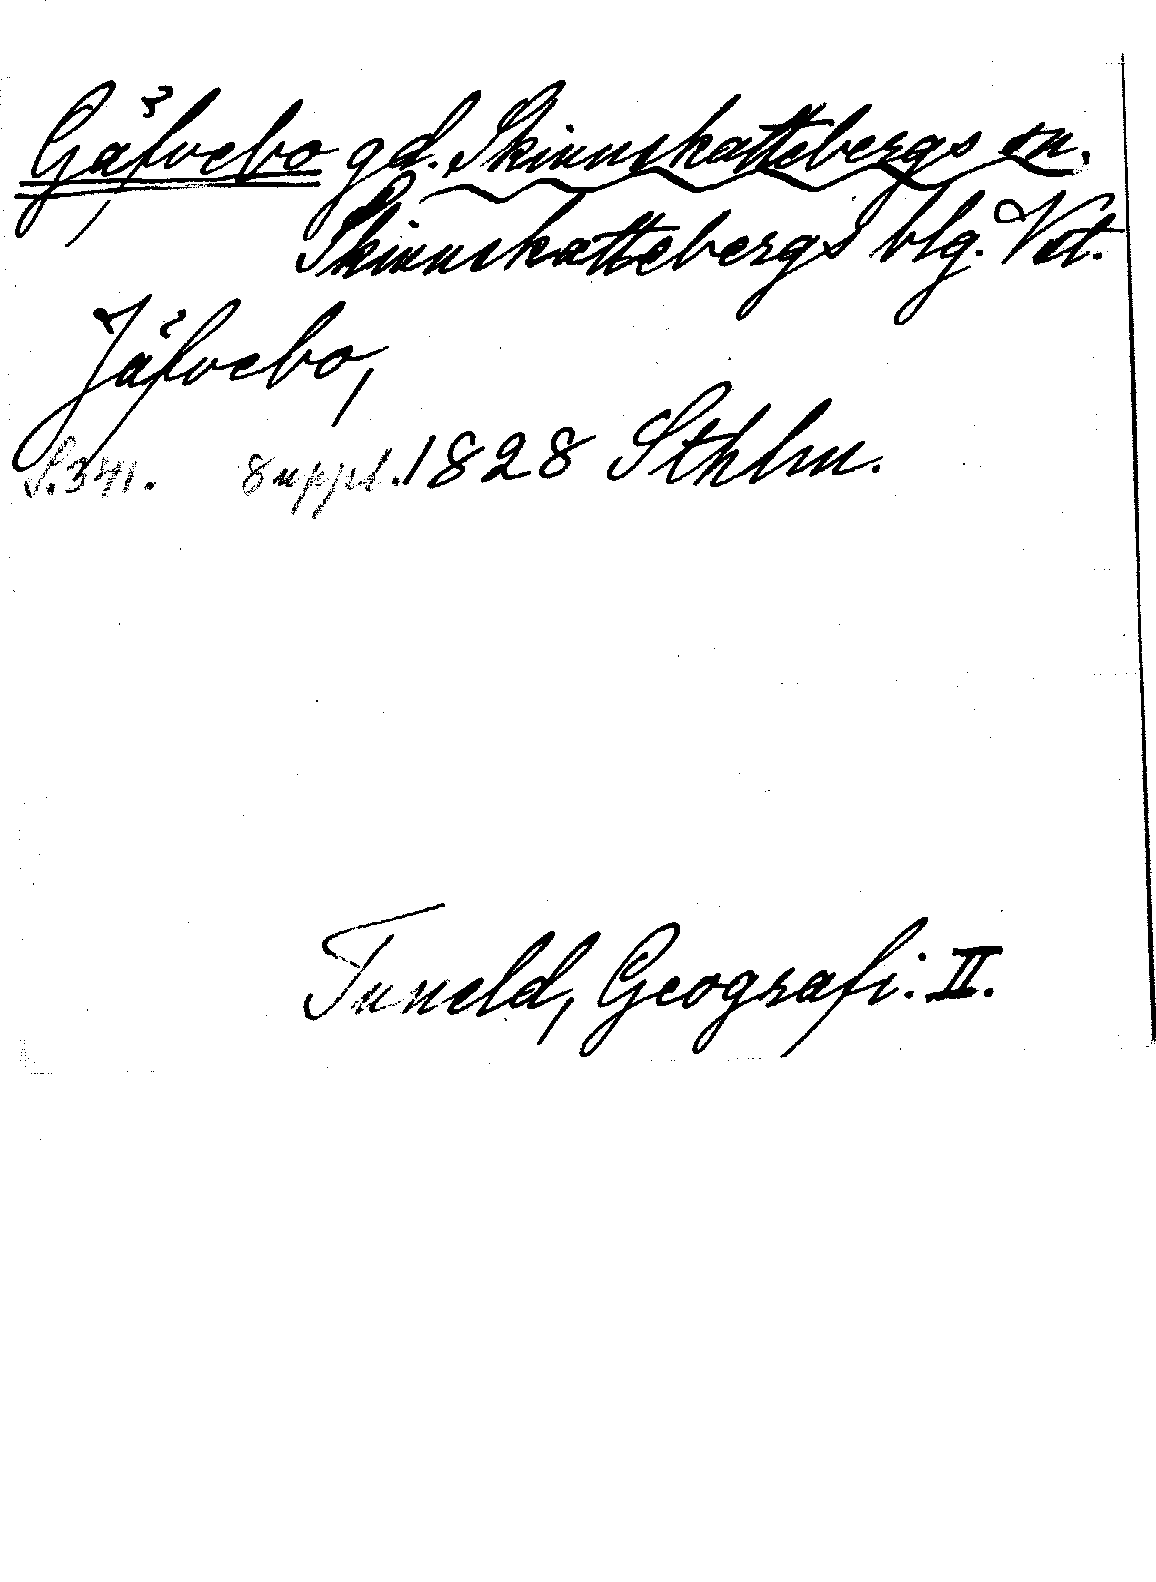 Gäfvebo gd. Skinnskattebergs sn.
Skinnskattebergs blg. Vstm.
Jäfvebo,
S. 341. Suppl. 1828 Sthlm.
Tuneld, Geografi. II.